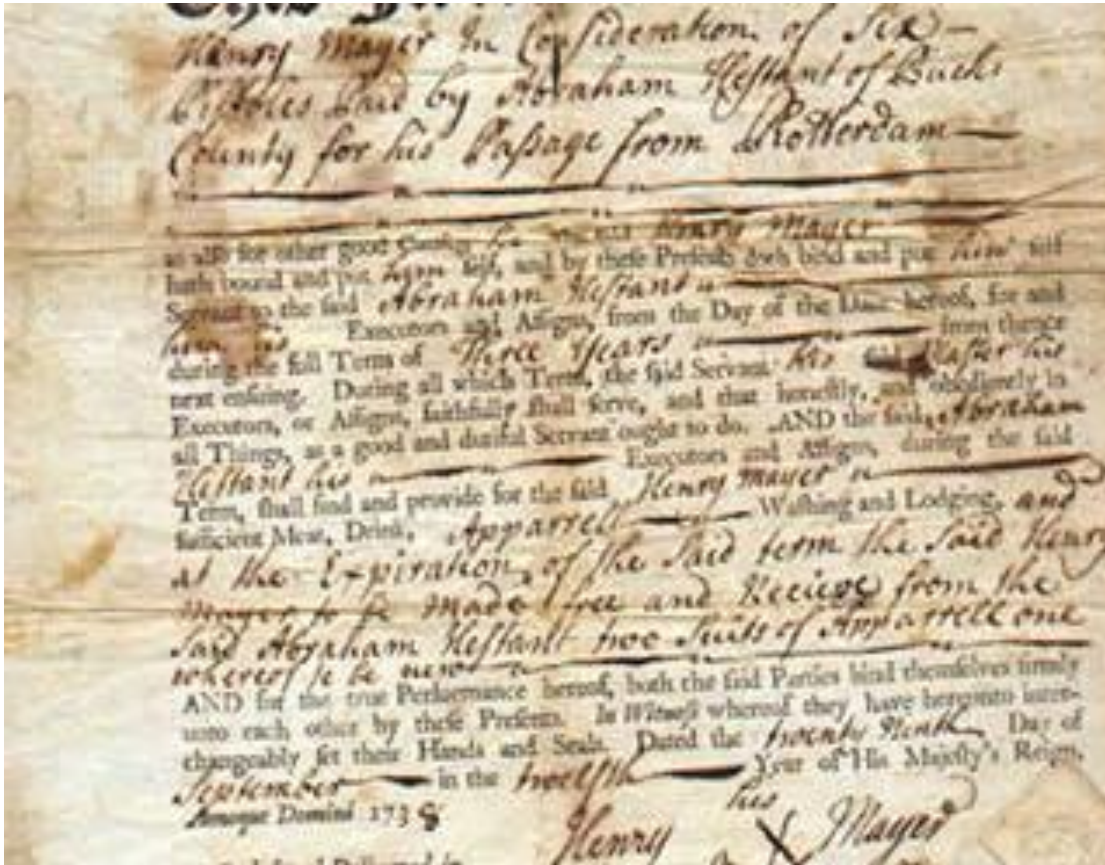 This
Henry Mayer In Consideration of Six —
Pistoles Paid by Abraham Hestant of Bucks
County for his Passage from Rotterdam —
as also for other good Causes he the said Henry Mayer
hath bound and put him self, and by these Presents doth bind and put him self
Servant to the said Abraham Hestant
Executors and Assigns, from the Day of the Date hereof, for and
during the full Term of Three Years from thence
next ensuing. During all which Term, the said Servant his said Master his
Executors, or Assigns, faithfully shall serve, and that honestly, and obediently in
all Things, as a good and dutiful Servant ought to do. AND the said Abraham
Hestant his Executors and Assigns, during the said
Term, shall find and provide for the said Henry Mayer
sufficient Meat, Drink, Apparrell Washing and Lodging, and
at the Expiration of the said term the said Henry
Mayer to be made free and Recieve from the
said Abraham Hestant two Suits of Apparrell one
whereof to be new
AND for the true Performance hereof, both the said Parties bind themselves firmly
unto each other by these Presents. In Witness whereof they have hereunto inter-
changeably set their Hands and Seals. Dated the twenty Ninth Day of
September in the twelfth Year of His Majesty's Reign,
Annoque Domini 1738
his
Henry X Mayer